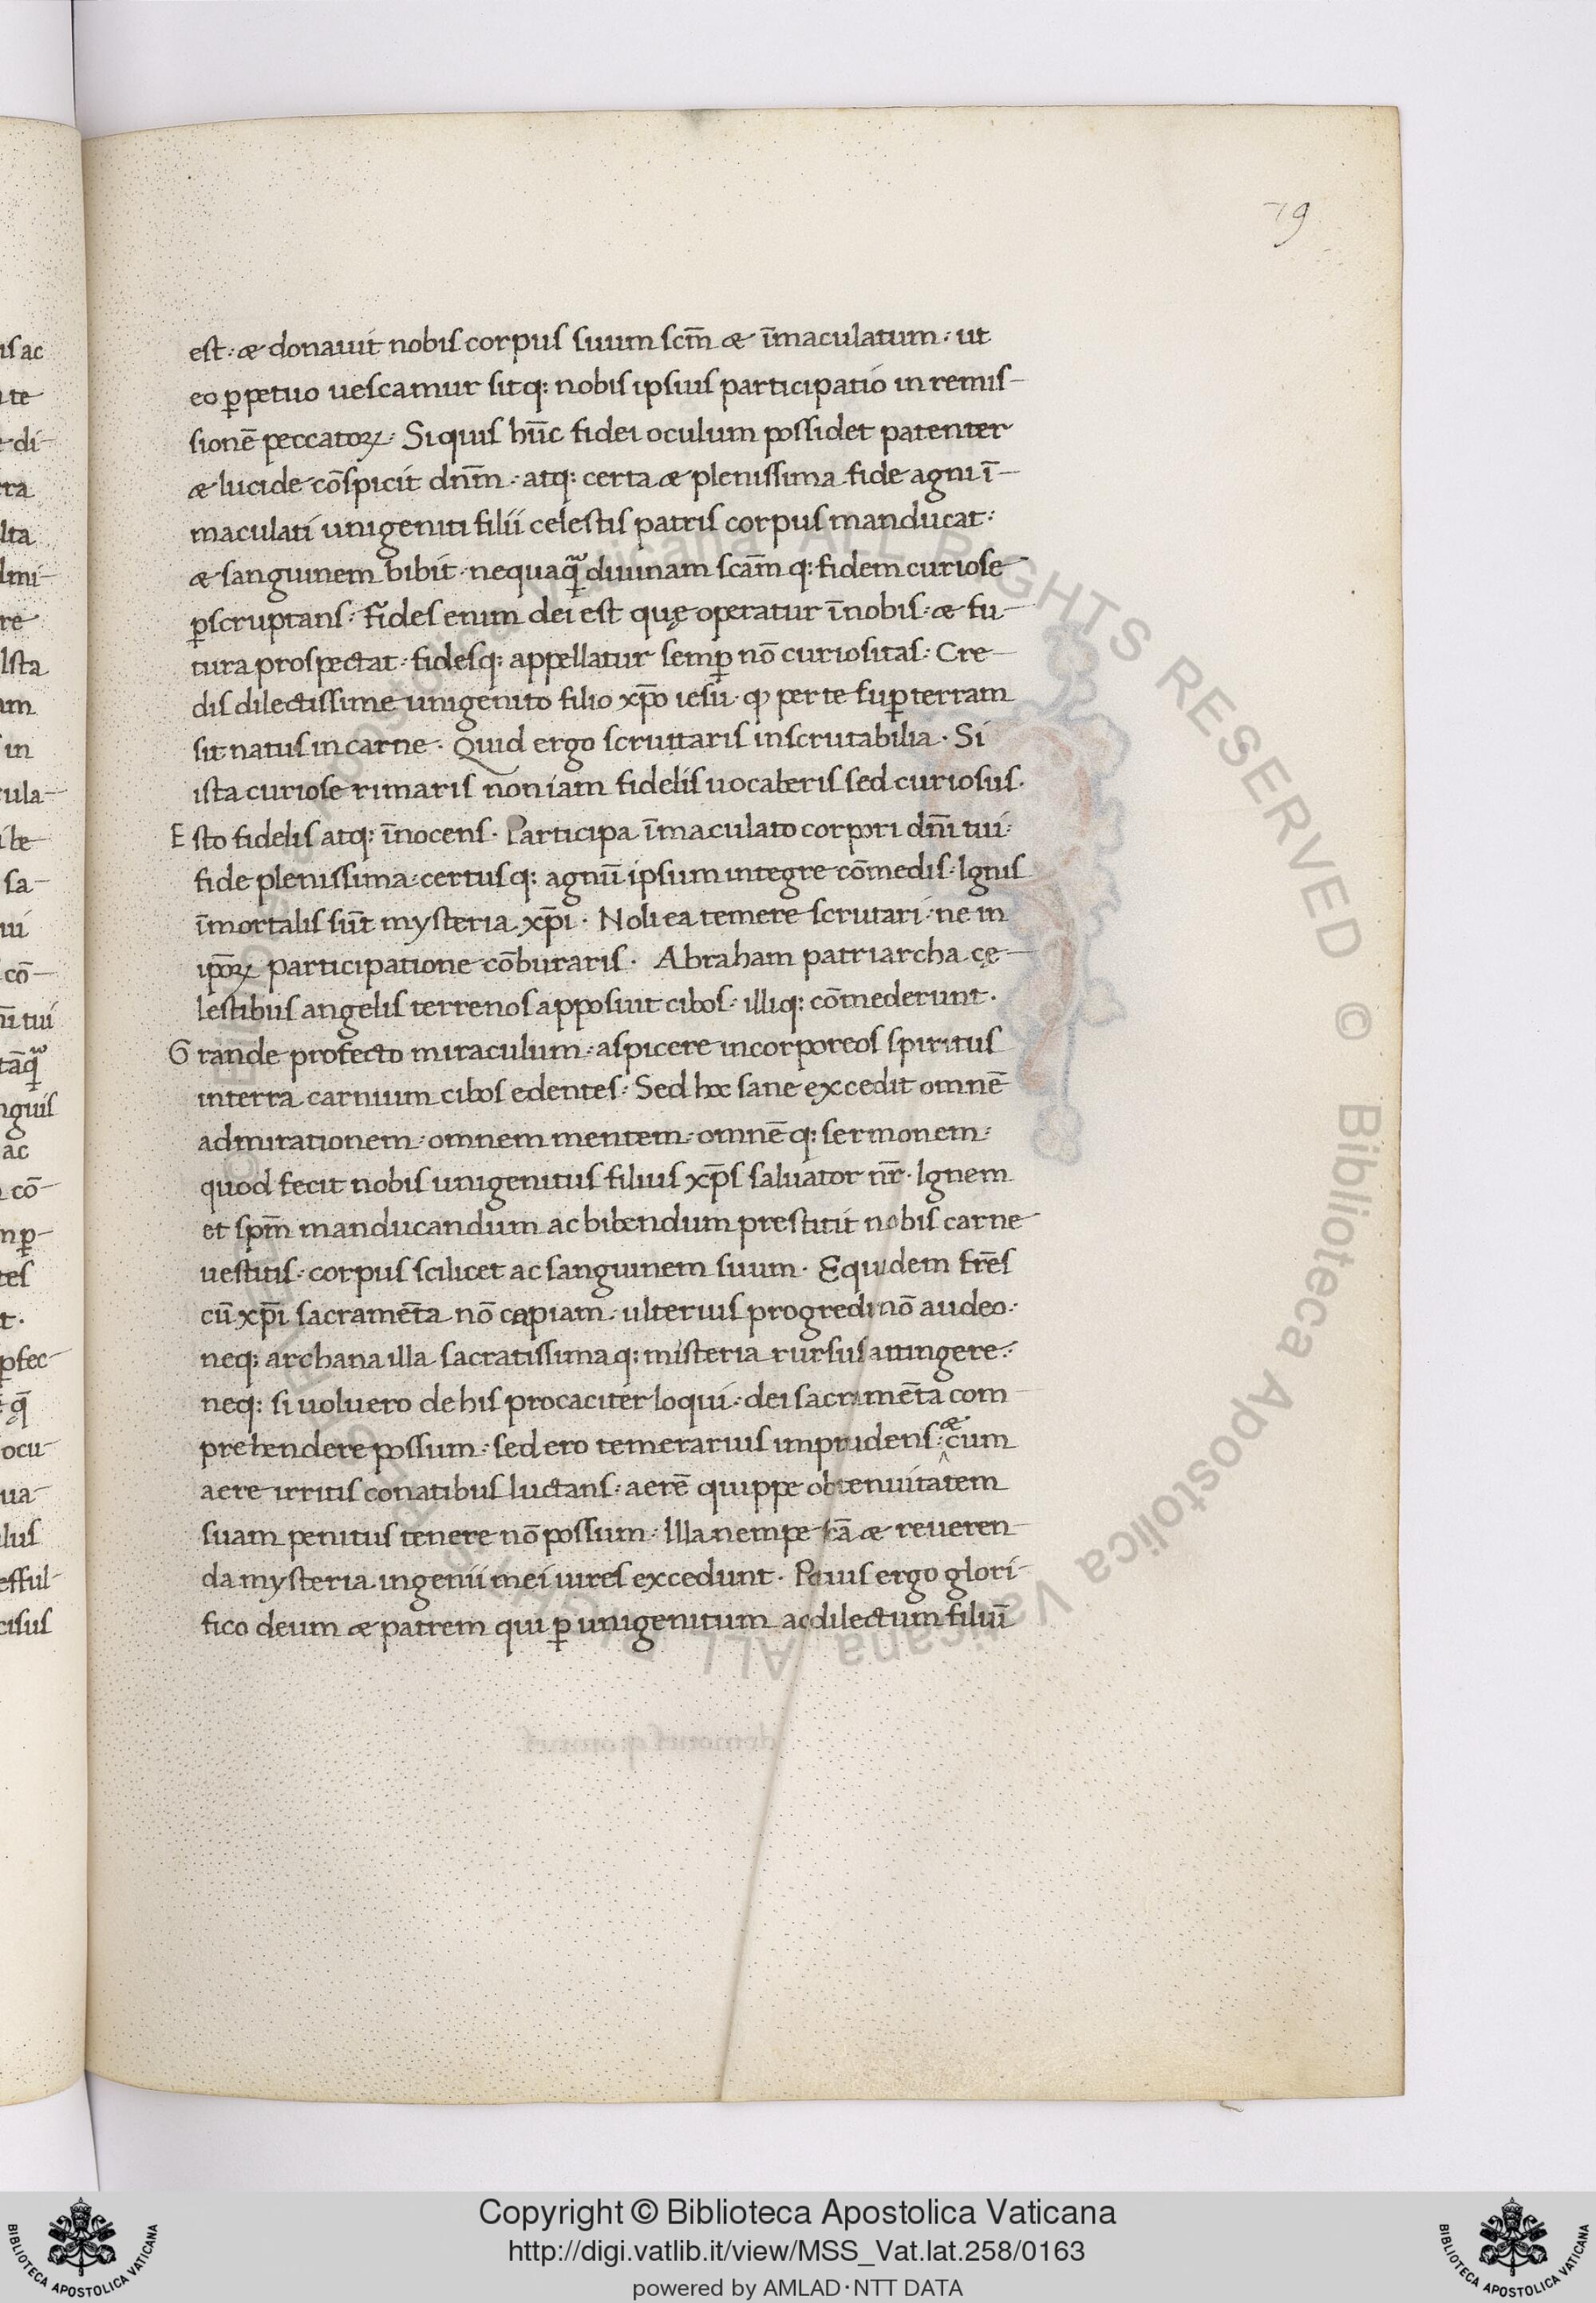 79
est: æ donauit nobis corpus suum scm̄ æ īmaculatum: ut
eo ꝑpetuo uescamur sitq: nobis ipsius participatio in remis-
sionē peccatoꝝ: Si quis hūc fidei oculum possidet patenter
æ lucide cōspicit dnm̄: atq: certa æ plenissima fide agni ī-
maculati unigeniti filii celestis patris corpus manducat:
æ sanguinem bibit: nequaq̄ diuinam scām q: fidem curiose
ꝑscruptans: fides enim dei est quę operatur ī nobis: æ fu-
tura prospectat: fidesq: appellatur semꝑ nō curiositas: Cre-
dis dilectissime unigenito filio xp̄o iesu: ꝙ per te suꝑ terram
sit natus in carne. Quid ergo scruttaris inscrutabilia. Si
ista curiose rimaris non iam fidelis uocaberis sed curiosus.
Esto fidelis atq: īnocens. Participa īmaculato corpori dnī tui:
fide plenissima: certusq: agnū ipsum integre cōmedis: Ignis
īmortalis sūt mysteria xp̄i. Noli ea temere scrutari: ne in
ip̄oꝝ participatione cōburaris. Abraham patriarcha cę-
lestibus angelis terrenos apposuit cibos: illiq: cōmederunt.
Grande profecto miraculum: aspicere incorporeos spiritus
in terra carnium cibos edentes: Sed hoc sane excedit omnē
admirationem: omnem mentem: omnē q: sermonem:
quod fecit nobis unigenitus filius xp̄s saluator nr̄. Ignem
et spm̄ manducandum ac bibendum prestitit nobis carne
uestitis: corpus scilicet ac sanguinem suum. Equidem fr̄es
cū xp̄i sacramēta nō capiam: ulterius progredi nō audeo:
neq: archana illa sacratissimaq: misteria rursus attingere:
neq: si uoluero de his procaciter loqui: dei sacramēta com
prehendere possum: sed ero temerarius imprudens: æ cum
aere irritis conatibus luctans: aerē quippe ob tenuitatem
suam penitus tenere nō possum: Illa nempe scā æ reueren
da mysteria ingenii mei uires excedunt. Potius ergo glori-
fico deum æ patrem qui ꝑ unigenitum ac dilectum filiū
Copyright © Biblioteca Apostolica Vaticana
http://digi.vatlib.it/view/MSS_Vat.lat.258/0163
powered by AMLAD·NTT DATA